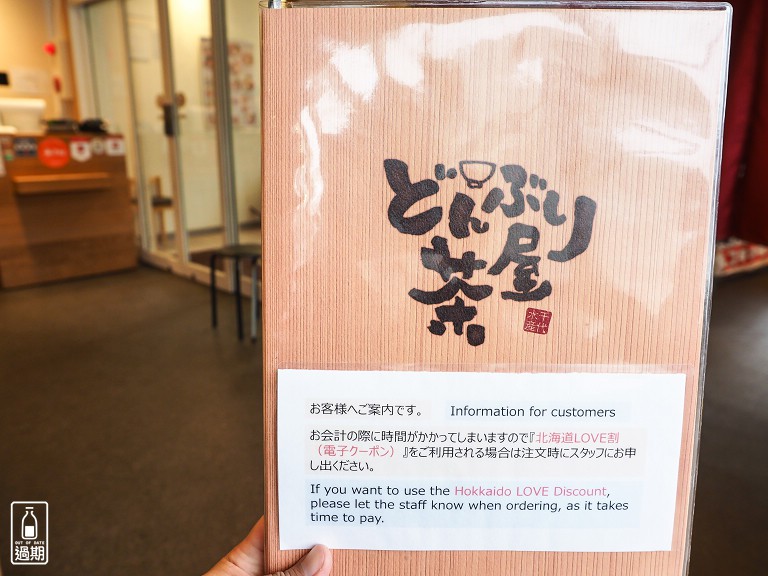 どんぶり
茶屋
千代
水産
お客様へご案内です。 Information for customers
お会計の際に時間がかかってしまいますので『北海道LOVE割
（電子クーポン）』をご利用される場合は注文時にスタッフにお申
し出ください。
If you want to use the Hokkaido LOVE Discount,
please let the staff know when ordering, as it takes
time to pay.
OUT OF DATE
過期